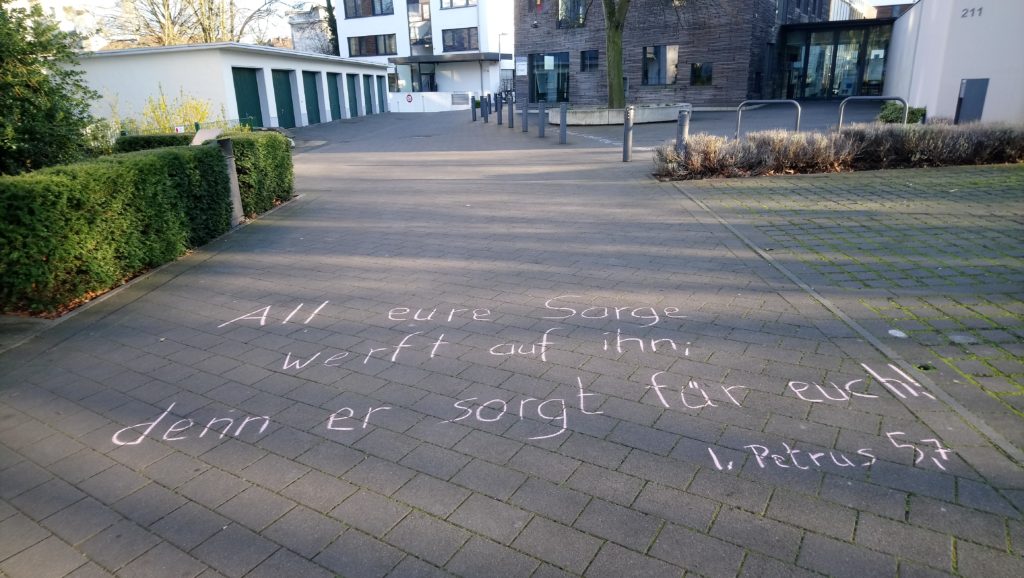 211
All eure Sorge
werft auf ihn;
denn er sorgt für euch!
1. Petrus 5,7